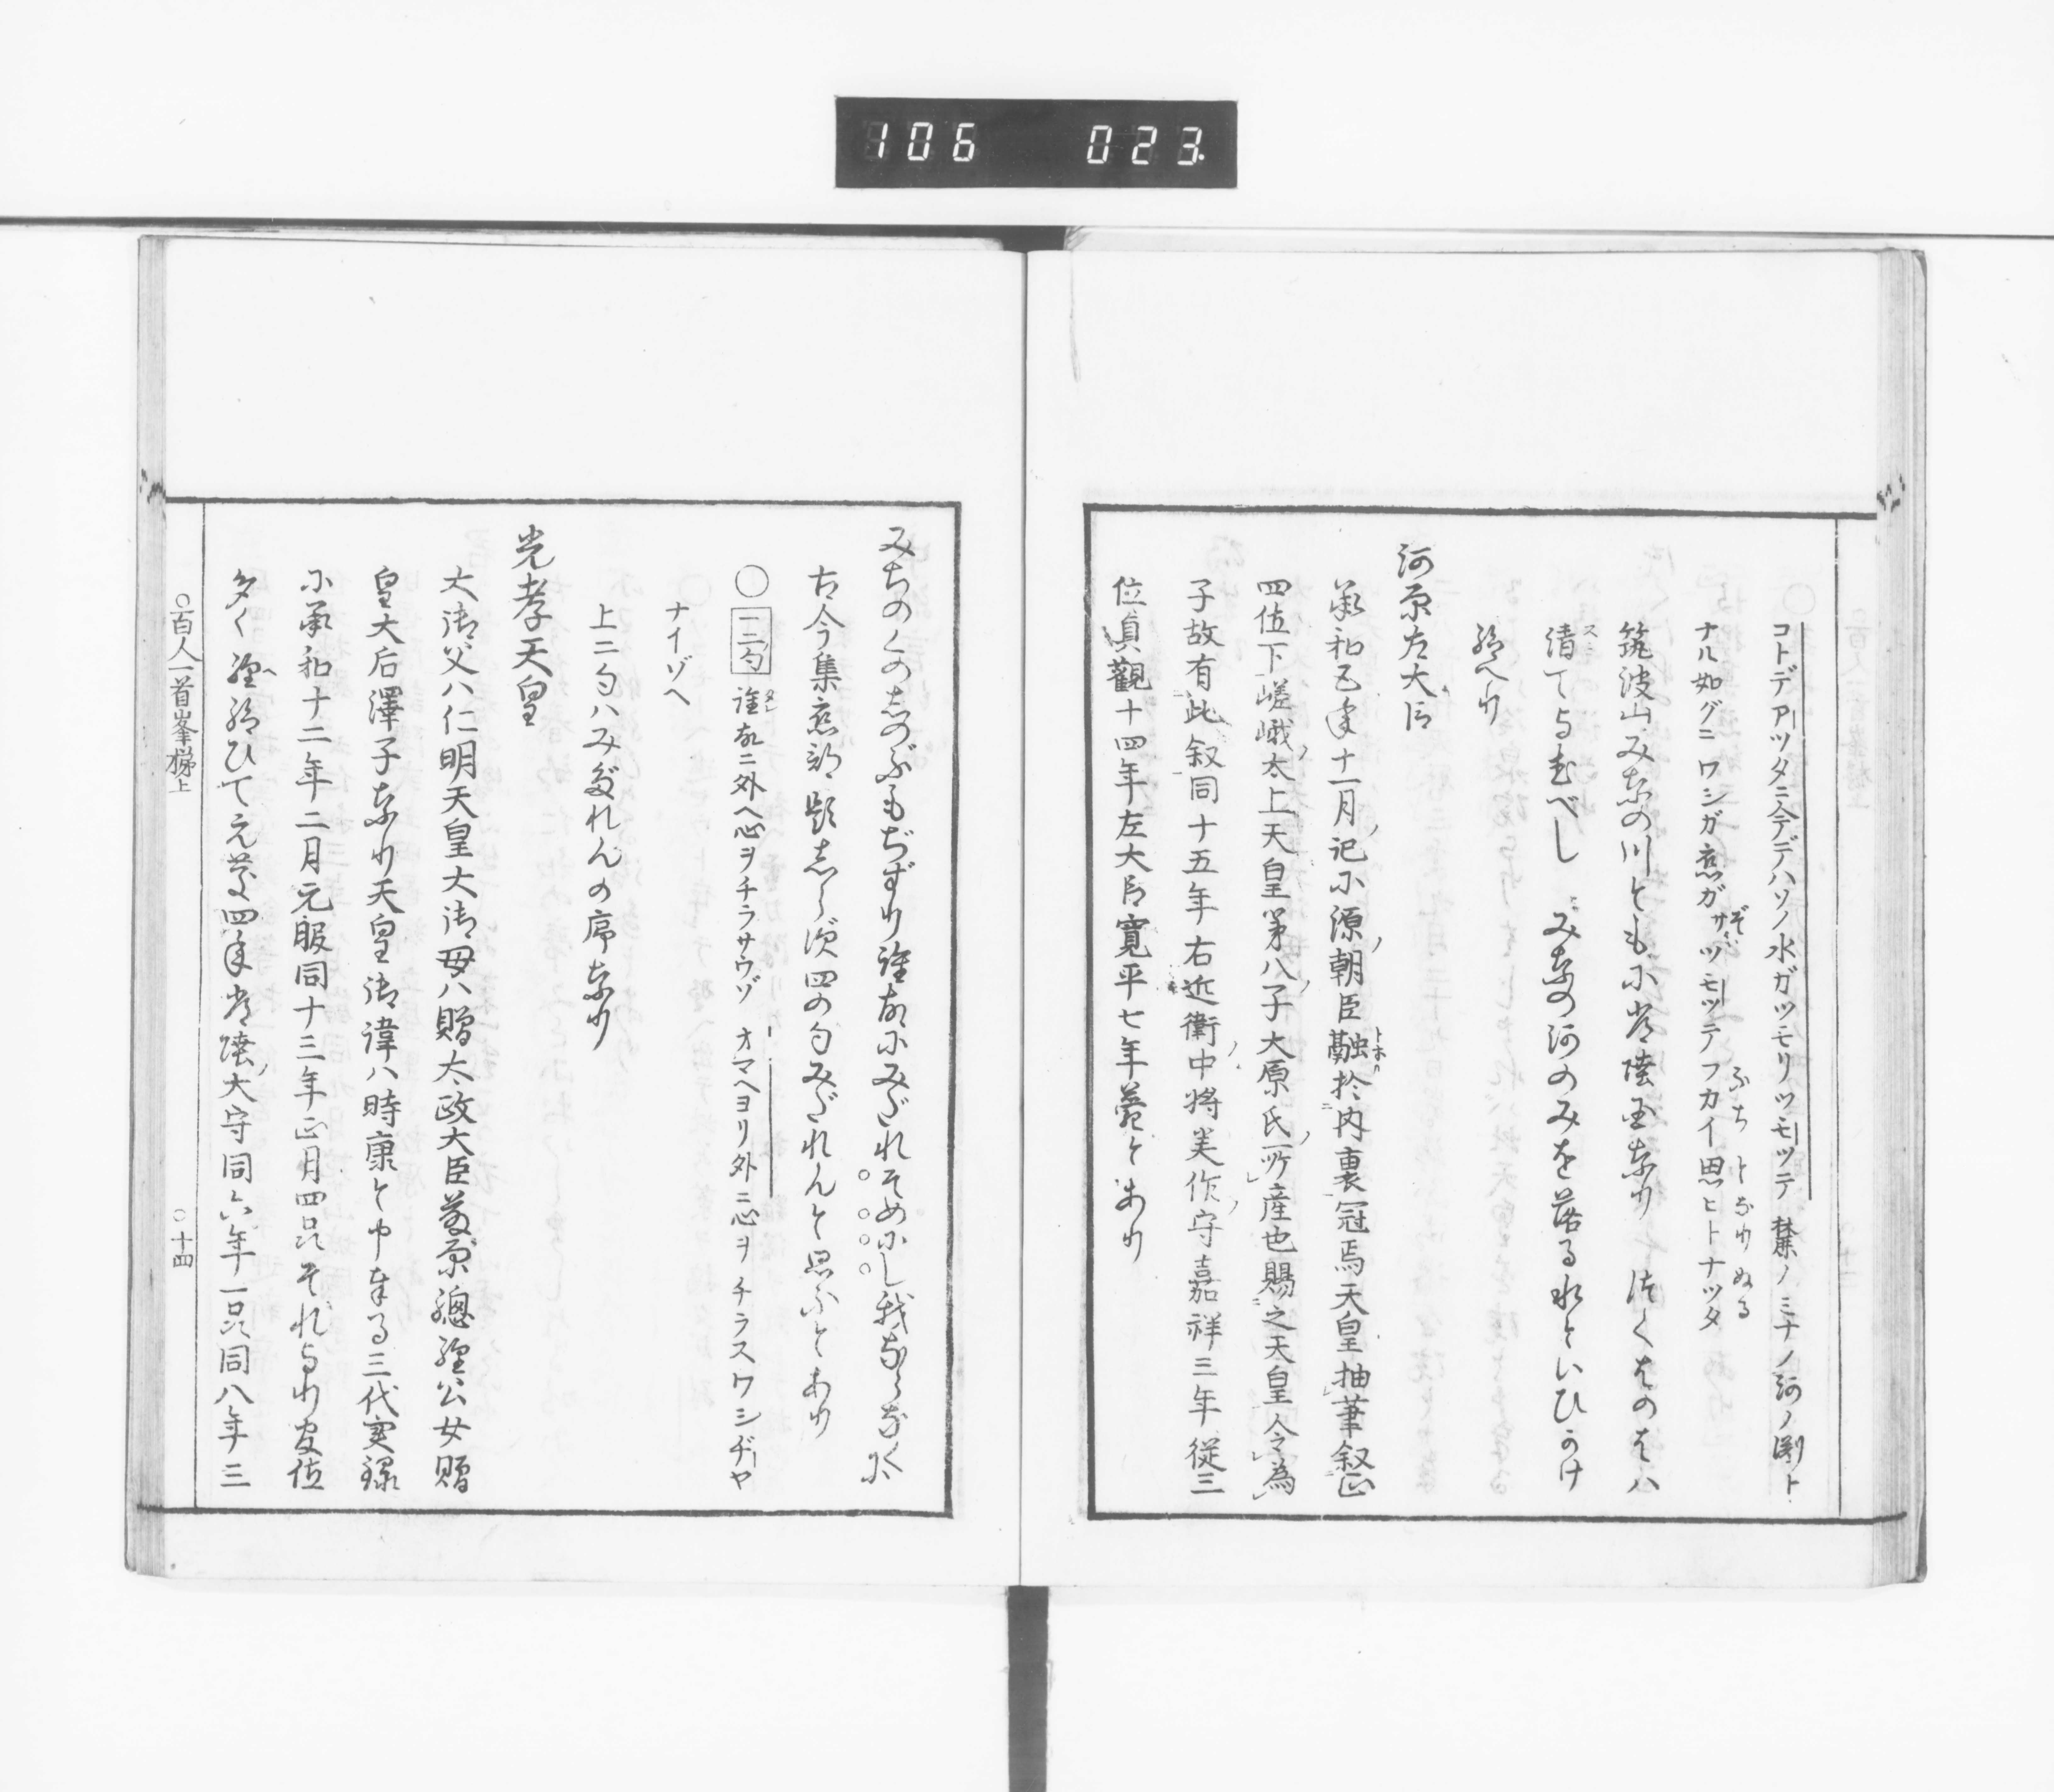 106 023
コトデアーツタニ今デハソノ水ガツモリツモーツテ 其ノミナノ河ノ淵ト
ナル如グニワシガ恋ガサツモーツテフカイ思ヒトナツタ
ぞ ふち となりぬる
筑波山みなの川ともに常陸国なり つくはのはハ
清てよむべし みなの河のみを落る水といひかけ
スミ
給へり
河原左大臣
承和五年十一月ノ記に源ノ朝臣融於内裏冠焉天皇抽筆叙正
トホル
四位下嵯峨太上天皇第八ノ子大原氏ノ所産也賜之天皇令為
子故有此叙同十五年右近衛ノ中将美作ノ守嘉祥三年従三
位貞観十四年左大臣寛平七年薨とあり
みちのくの志のぶもぢずり誰故にみだれそめにし我ならなくに
古今集恋部題志らず四の句みだれんと思ふとあり
○一二句 誰故ニ外ヘ心ヲチラサウゾ オマヘヨリ外ニ心ヲチラスワシヂーヤ
ナイゾヘ
上二句ハみだれんの序なり
光孝天皇
大御父ハ仁明天皇大御母ハ贈太政大臣藤原總継公女贈
皇大后澤子なり天皇御諱ハ時康と申奉る三代実録
に承和十二年二月元服同十三年正月四品それより官位
多く経給ひて元慶四年常陸ノ大守同六年一品同八年三
○百人一首峯梯上 ○十四